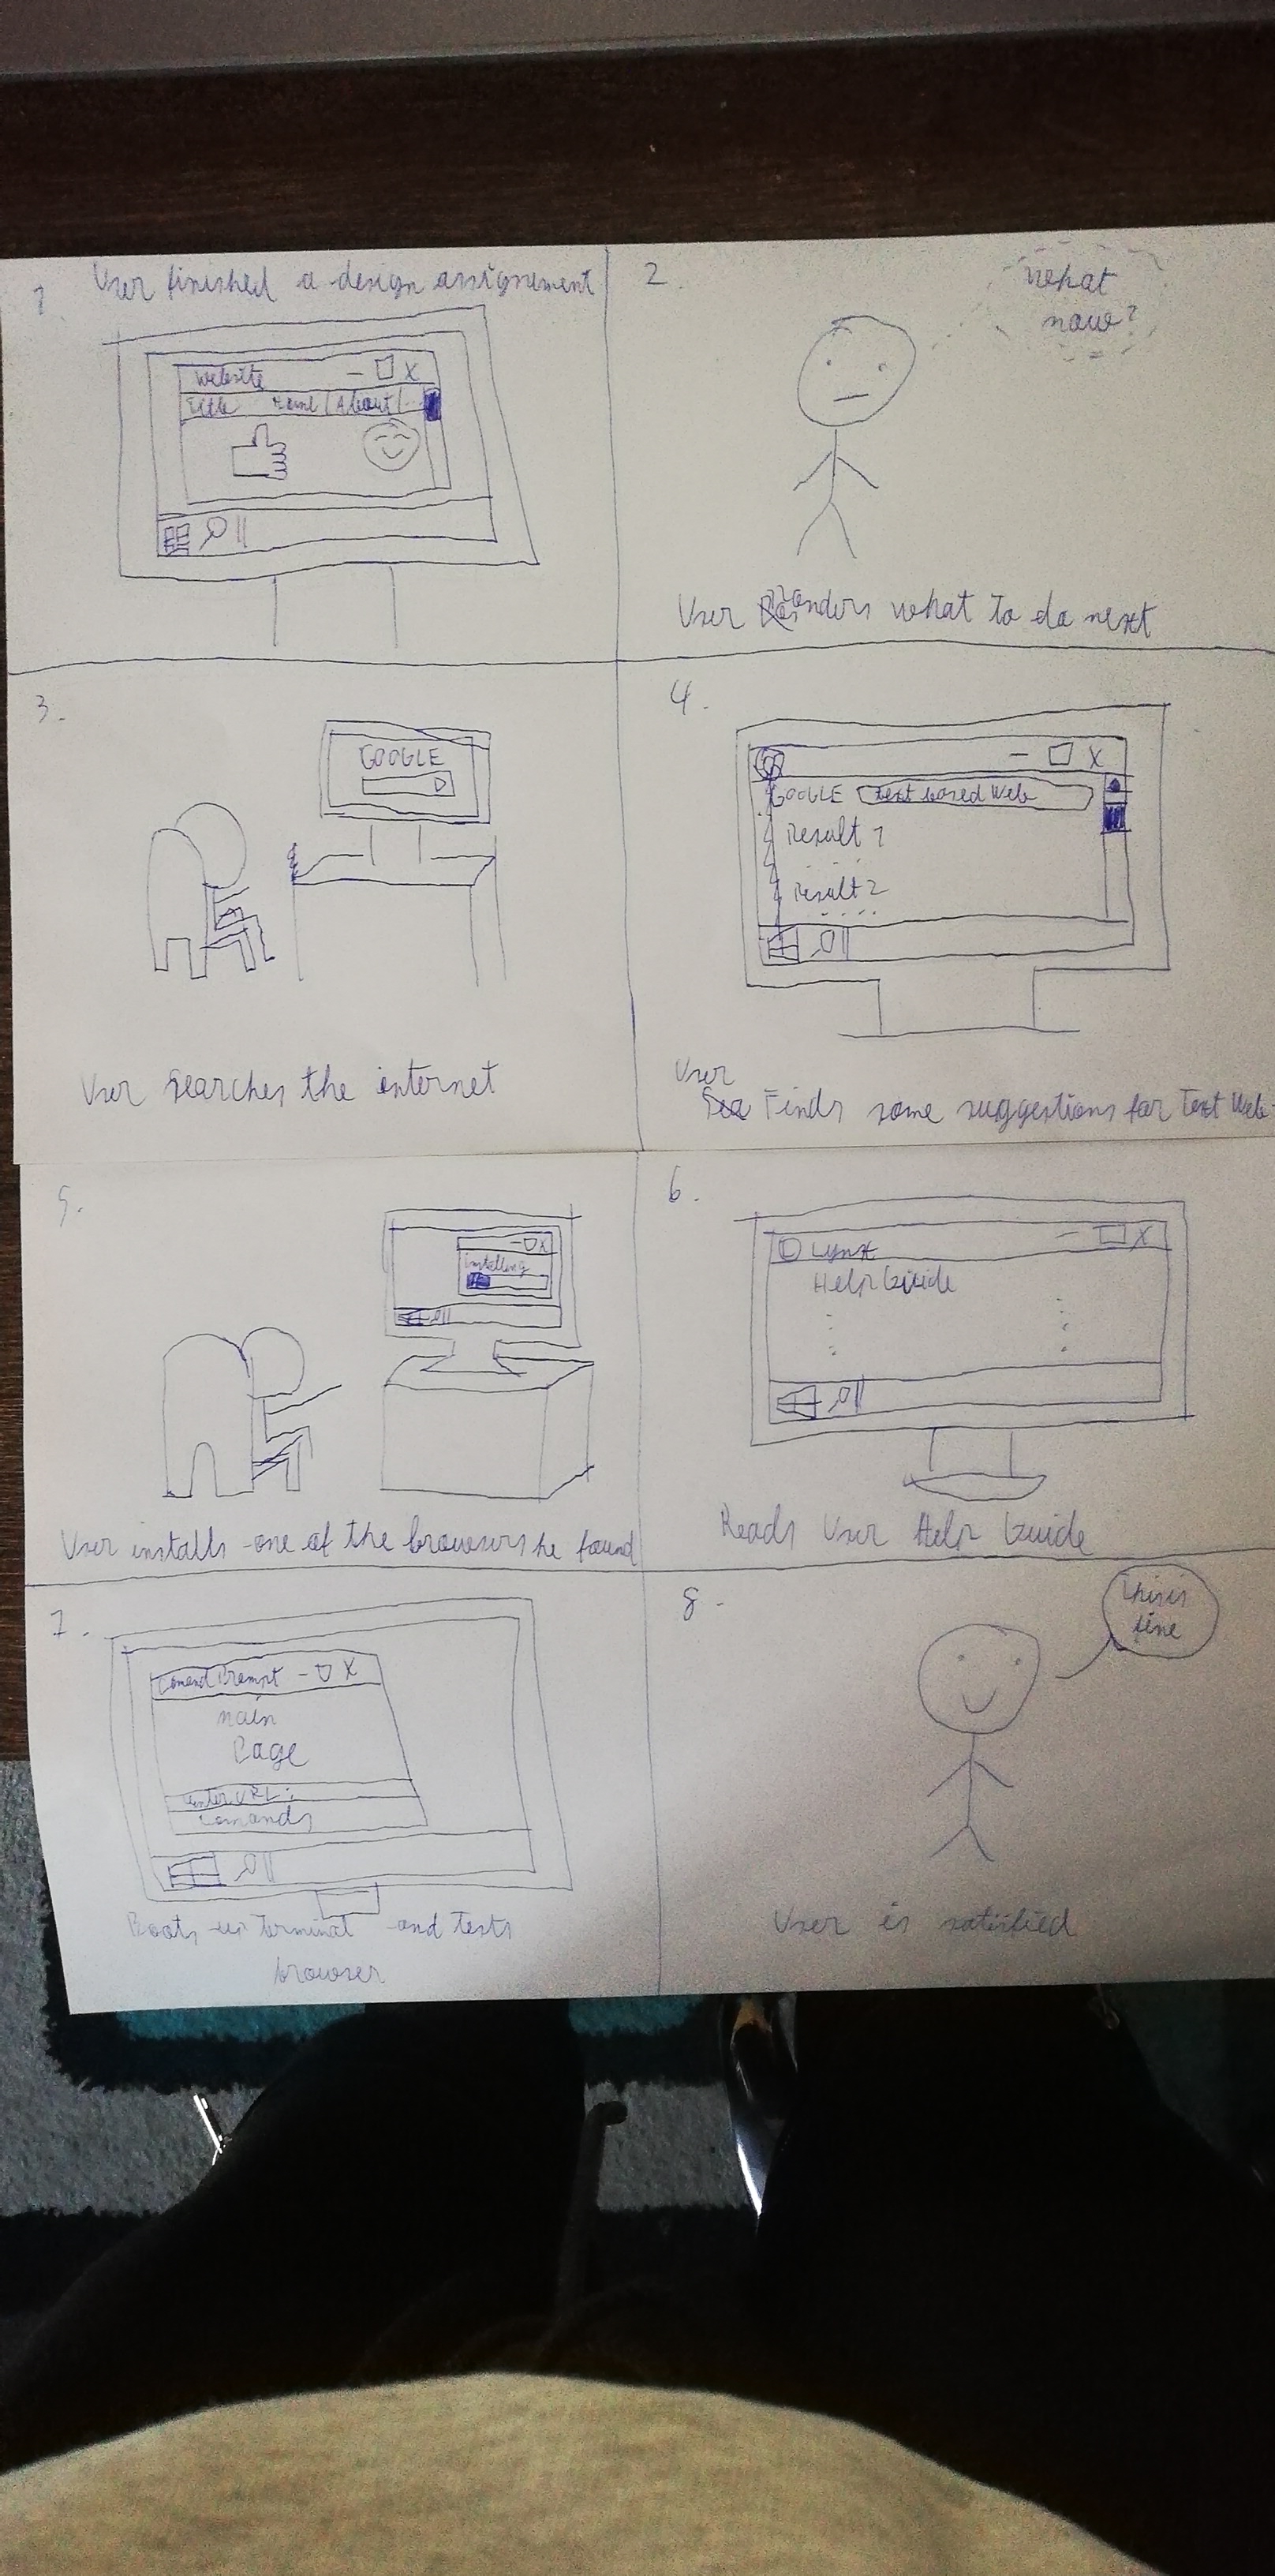 1.
User finished a design assignement
Website - X
Title Home | About | ...
2.
What
now?
User wonders what to do next
3.
GOOGLE
User searches the internet
4.
- X
GOOGLE text based Web
Result 1
. . . .
Result 2
. . . .
User
Finds some suggestions for Text Web-
5.
- X
installing
User installs one of the browsers he found
6.
Lynx - X
Help Guide
Reads User Help Guide
7.
Comand Prompt - X
main
Page
Enter URL:
Comands
Boots up Terminal and tests
browser
8.
This is
fine
User is satisfied